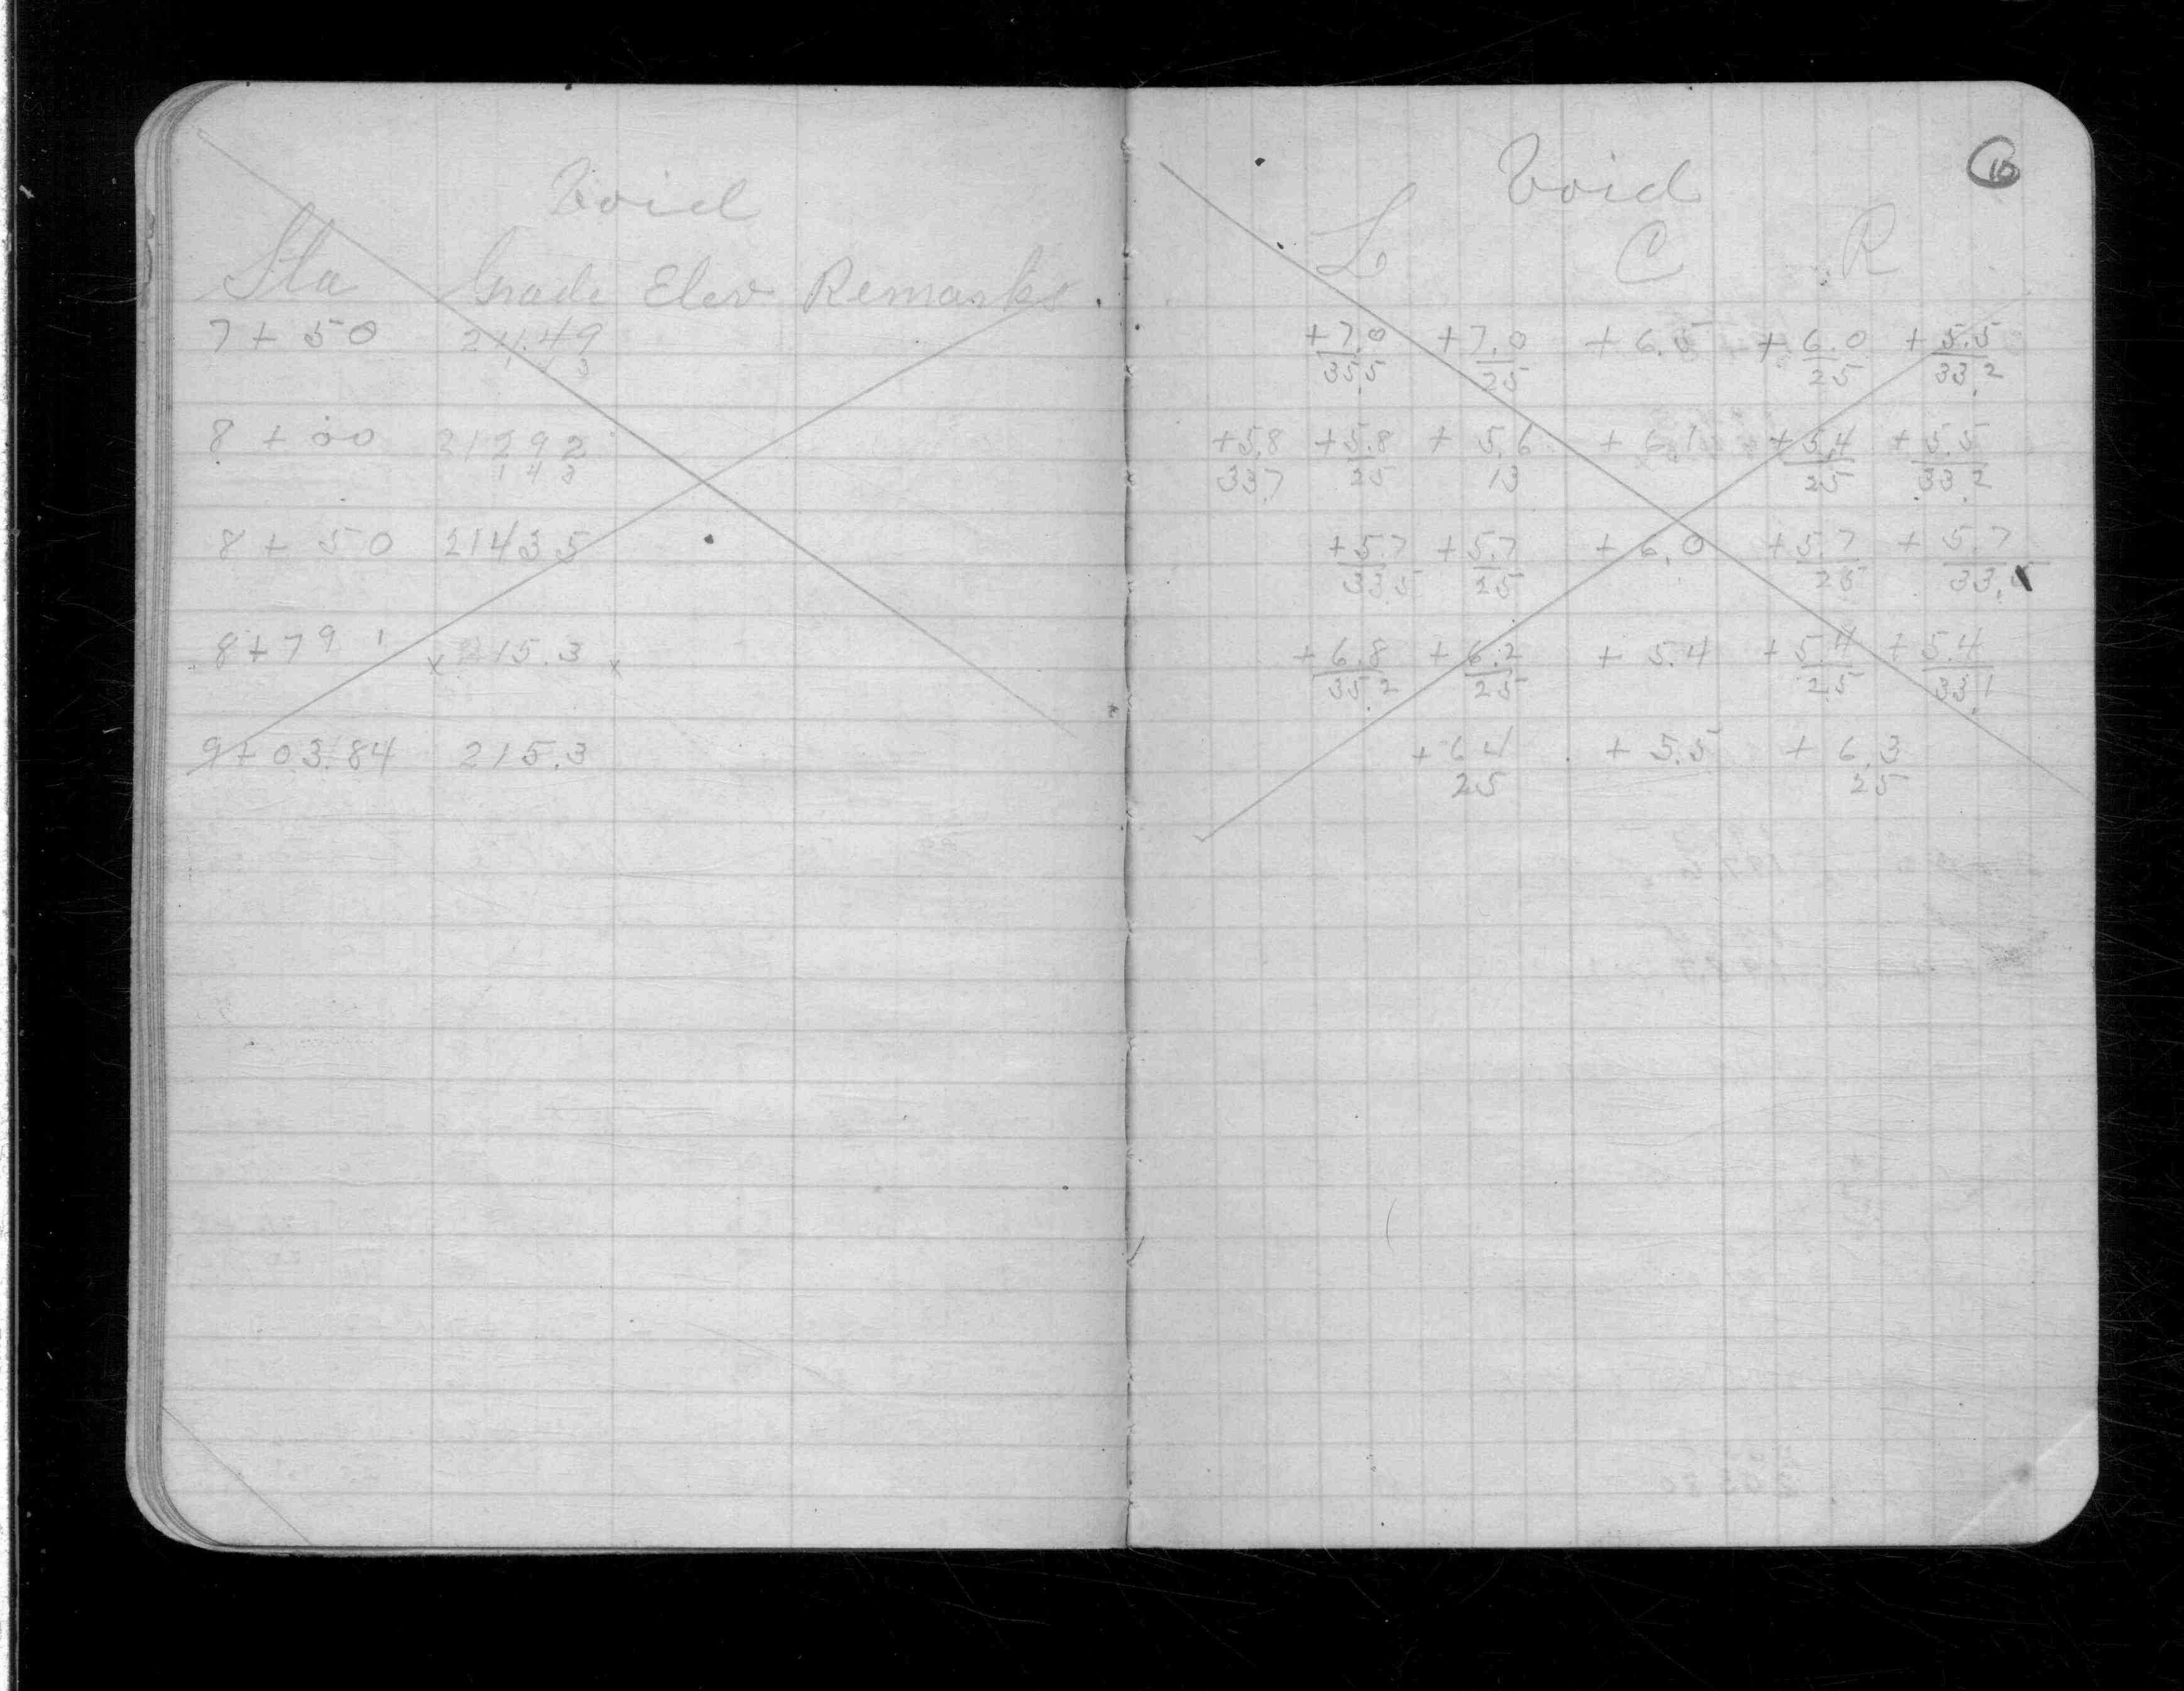 Void
Sta Grade Elev Remarks.
7 + 50 211.49
1 4 3
8 + 00 212 92
1 4 3
8 + 50 214 35
8 + 79 1 x 215.3 x
9 + 03.84 215.3
10
Void
L C R
+ 7.0 + 7.0 + 6.5 + 6.0 + 5.5
35.5 25 25 33.2
+ 5.8 + 5.8 + 5.6 + 6.1 + 5.4 + 5.5
33.7 25 13 25 33.2
+ 5.7 + 5.7 + 6.0 + 5.7 + 5.7
33.5 25 25 33.5
+ 6.8 + 6.2 + 5.4 + 5.4 + 5.4
35.2 25 25 33.1
+ 6 4 + 5.5 + 6.3
25 25